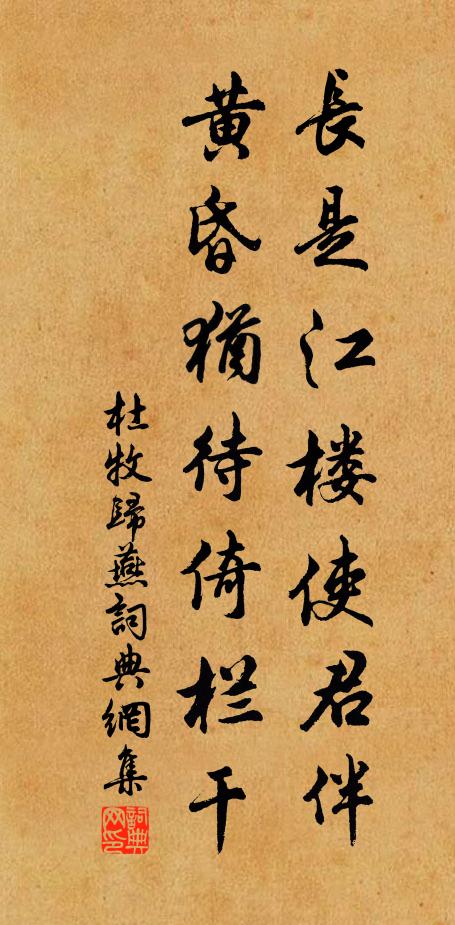 長是江楼使君伴
黄昏猶待倚栏干
杜牧歸燕詞典網集
詞典网印